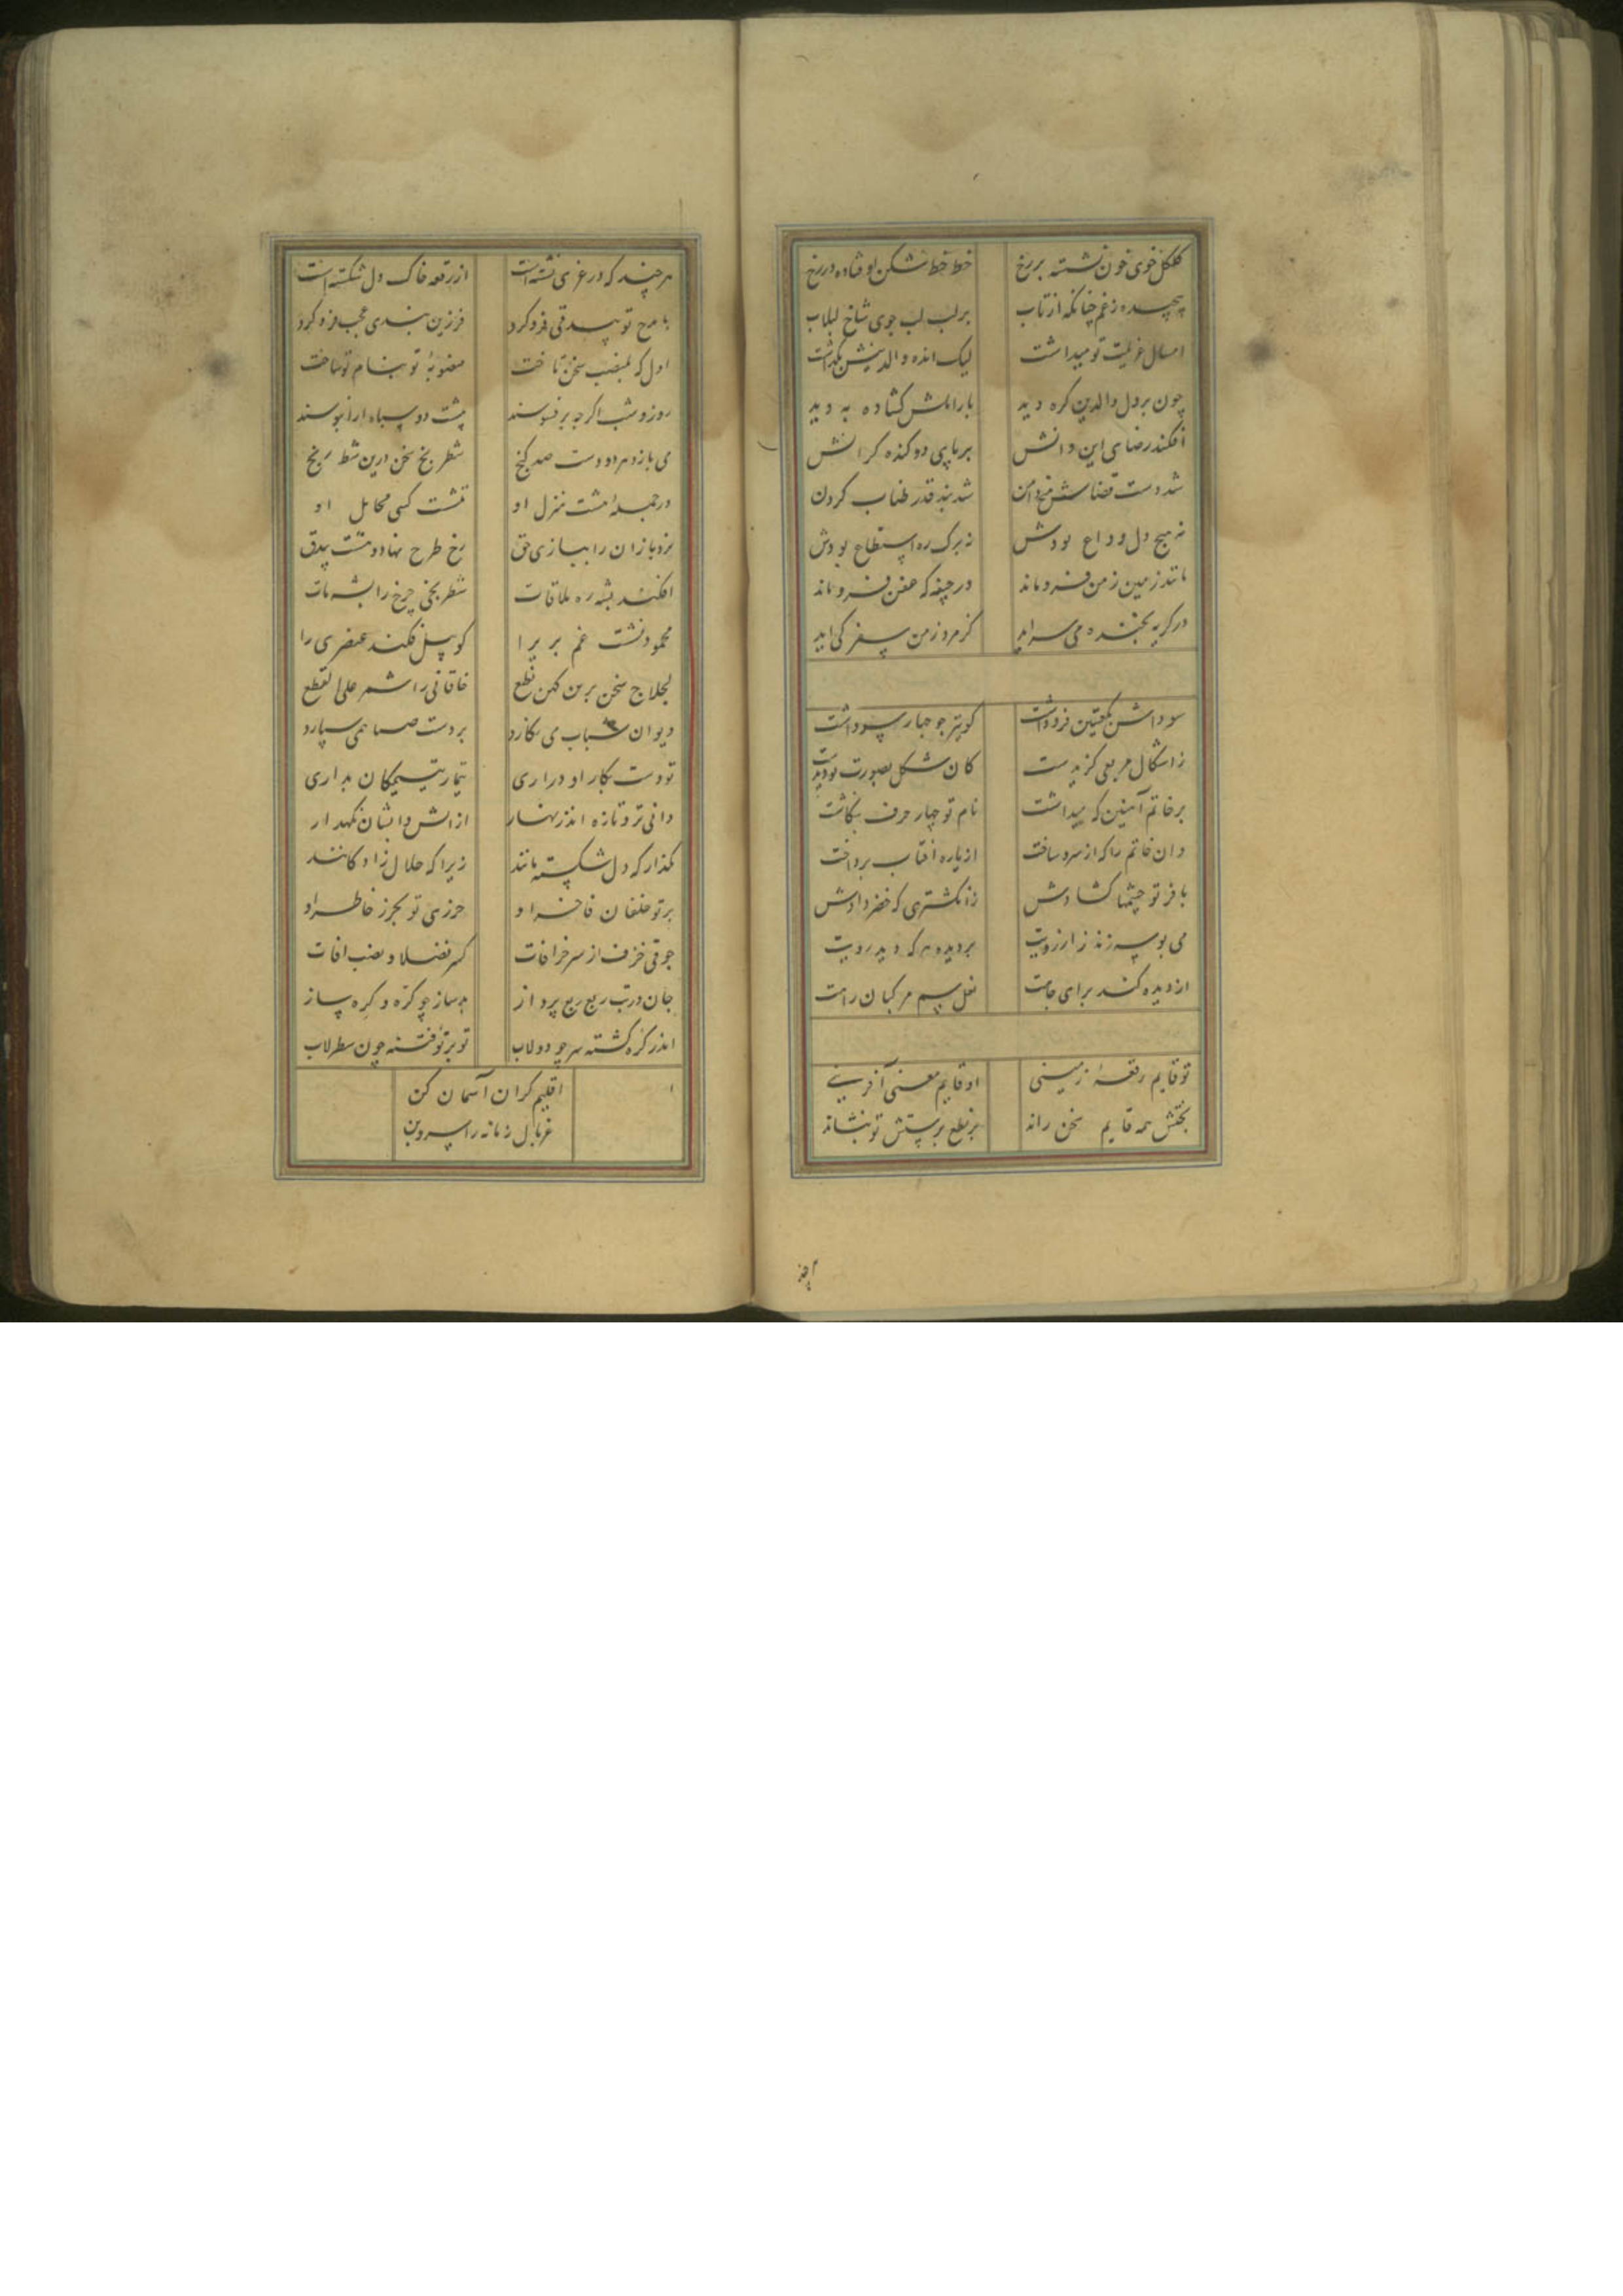 گلگل خوی خون نشسته بر رخ خط خط شکن اوفتاده در رخ
پیچیده ز غم چنانکه از تاب بر لب لب جوی شاخ لبلاب
امسال عزیمت تو میداشت لیک انده والدینش نگذاشت
چون بر دل والدین کره دید بار املش کشاده به دید
افکند رضای این و آنش بر پای دو کنده کرانش
شد دست قضاش دامن شد بند قدر طناب کردن
نه هیچ دل وداع بودش نه برک ره استطاع بودش
ماند زمین زمن فروماند در جیفه که عفن فروماند
در کریه بخنده می سراید کز مرد زمن سفر کی آید
سوداش بکعبتین فرو داشت کو بتر جو جهار سو داشت
ز اشکال مربعی کزیدست کان شکل بصورت تو دیدست
بر خاتم آهنین که میداشت نام تو جهار حرف بنکاشت
وان خاتم را که از سرو ساخت از یاره افتاب برداخت
با فر تو چشمها کشادش ز انکشتری که خضر دادش
می بوسه زند ز ارزویت بر دیده هر که دید رویت
از دیده کند برای جاهت نعل سم مرکبان راهت
تو قایم رقعهٔ زمینی او قایم معنی آفرینی
بختش همه قایم سخن راند بر نطع پرستش تو بنشاند
هر چند که در عری نشسته است از رقعه خاک دل شکسته است
با مدح تو بیدقی فرو کرد فرزین بندی عجب فرو کرد
اول که بمنصب سخن تاخت منصوبهٔ تو بنام تو ساخت
روز و شب اکرچه بر فسوسند پشت دو سپاه از آبنوسند
می بازد هر دو دست صد کنج شطرنج سخن درین شط رنج
در جمله هشت منزل او ننشست کسی مقابل او
نرد بازان را ببازی حق رخ طرح نهاد و هشت بیدق
افکند بشه ره ملاقات شطرنجی چرخ را بشه مات
محمود نشست غم بر برا کو پیل فکند عنصری را
لجلاج سخن برین کهن نطع خاقانی را شمر علی القطع
دیوان شباب می نکارد بر دست صبا همی سپارد
تو دست بکار او در اری تیمار یتیمکان بداری
دانی تر و تازه اند زنهار از اتش و ابشان نکهدار
مکذار که دل شکسته مانند زیرا که حلال زادکانند
بر تو خلفان فاخر او حرزی تو بحرز خاطر او
جوقی خزف از سر خرافات کسر فضلا و نصب افات
جان در تب ربع ربع پرداز بدساز چو کرّه و کِره ساز
اندر کُره کشته سر چو دولاب تو برتو فتنه چون سطرلاب
اقلیم کران آسمان کن
غربال زمانه را بپرویزن